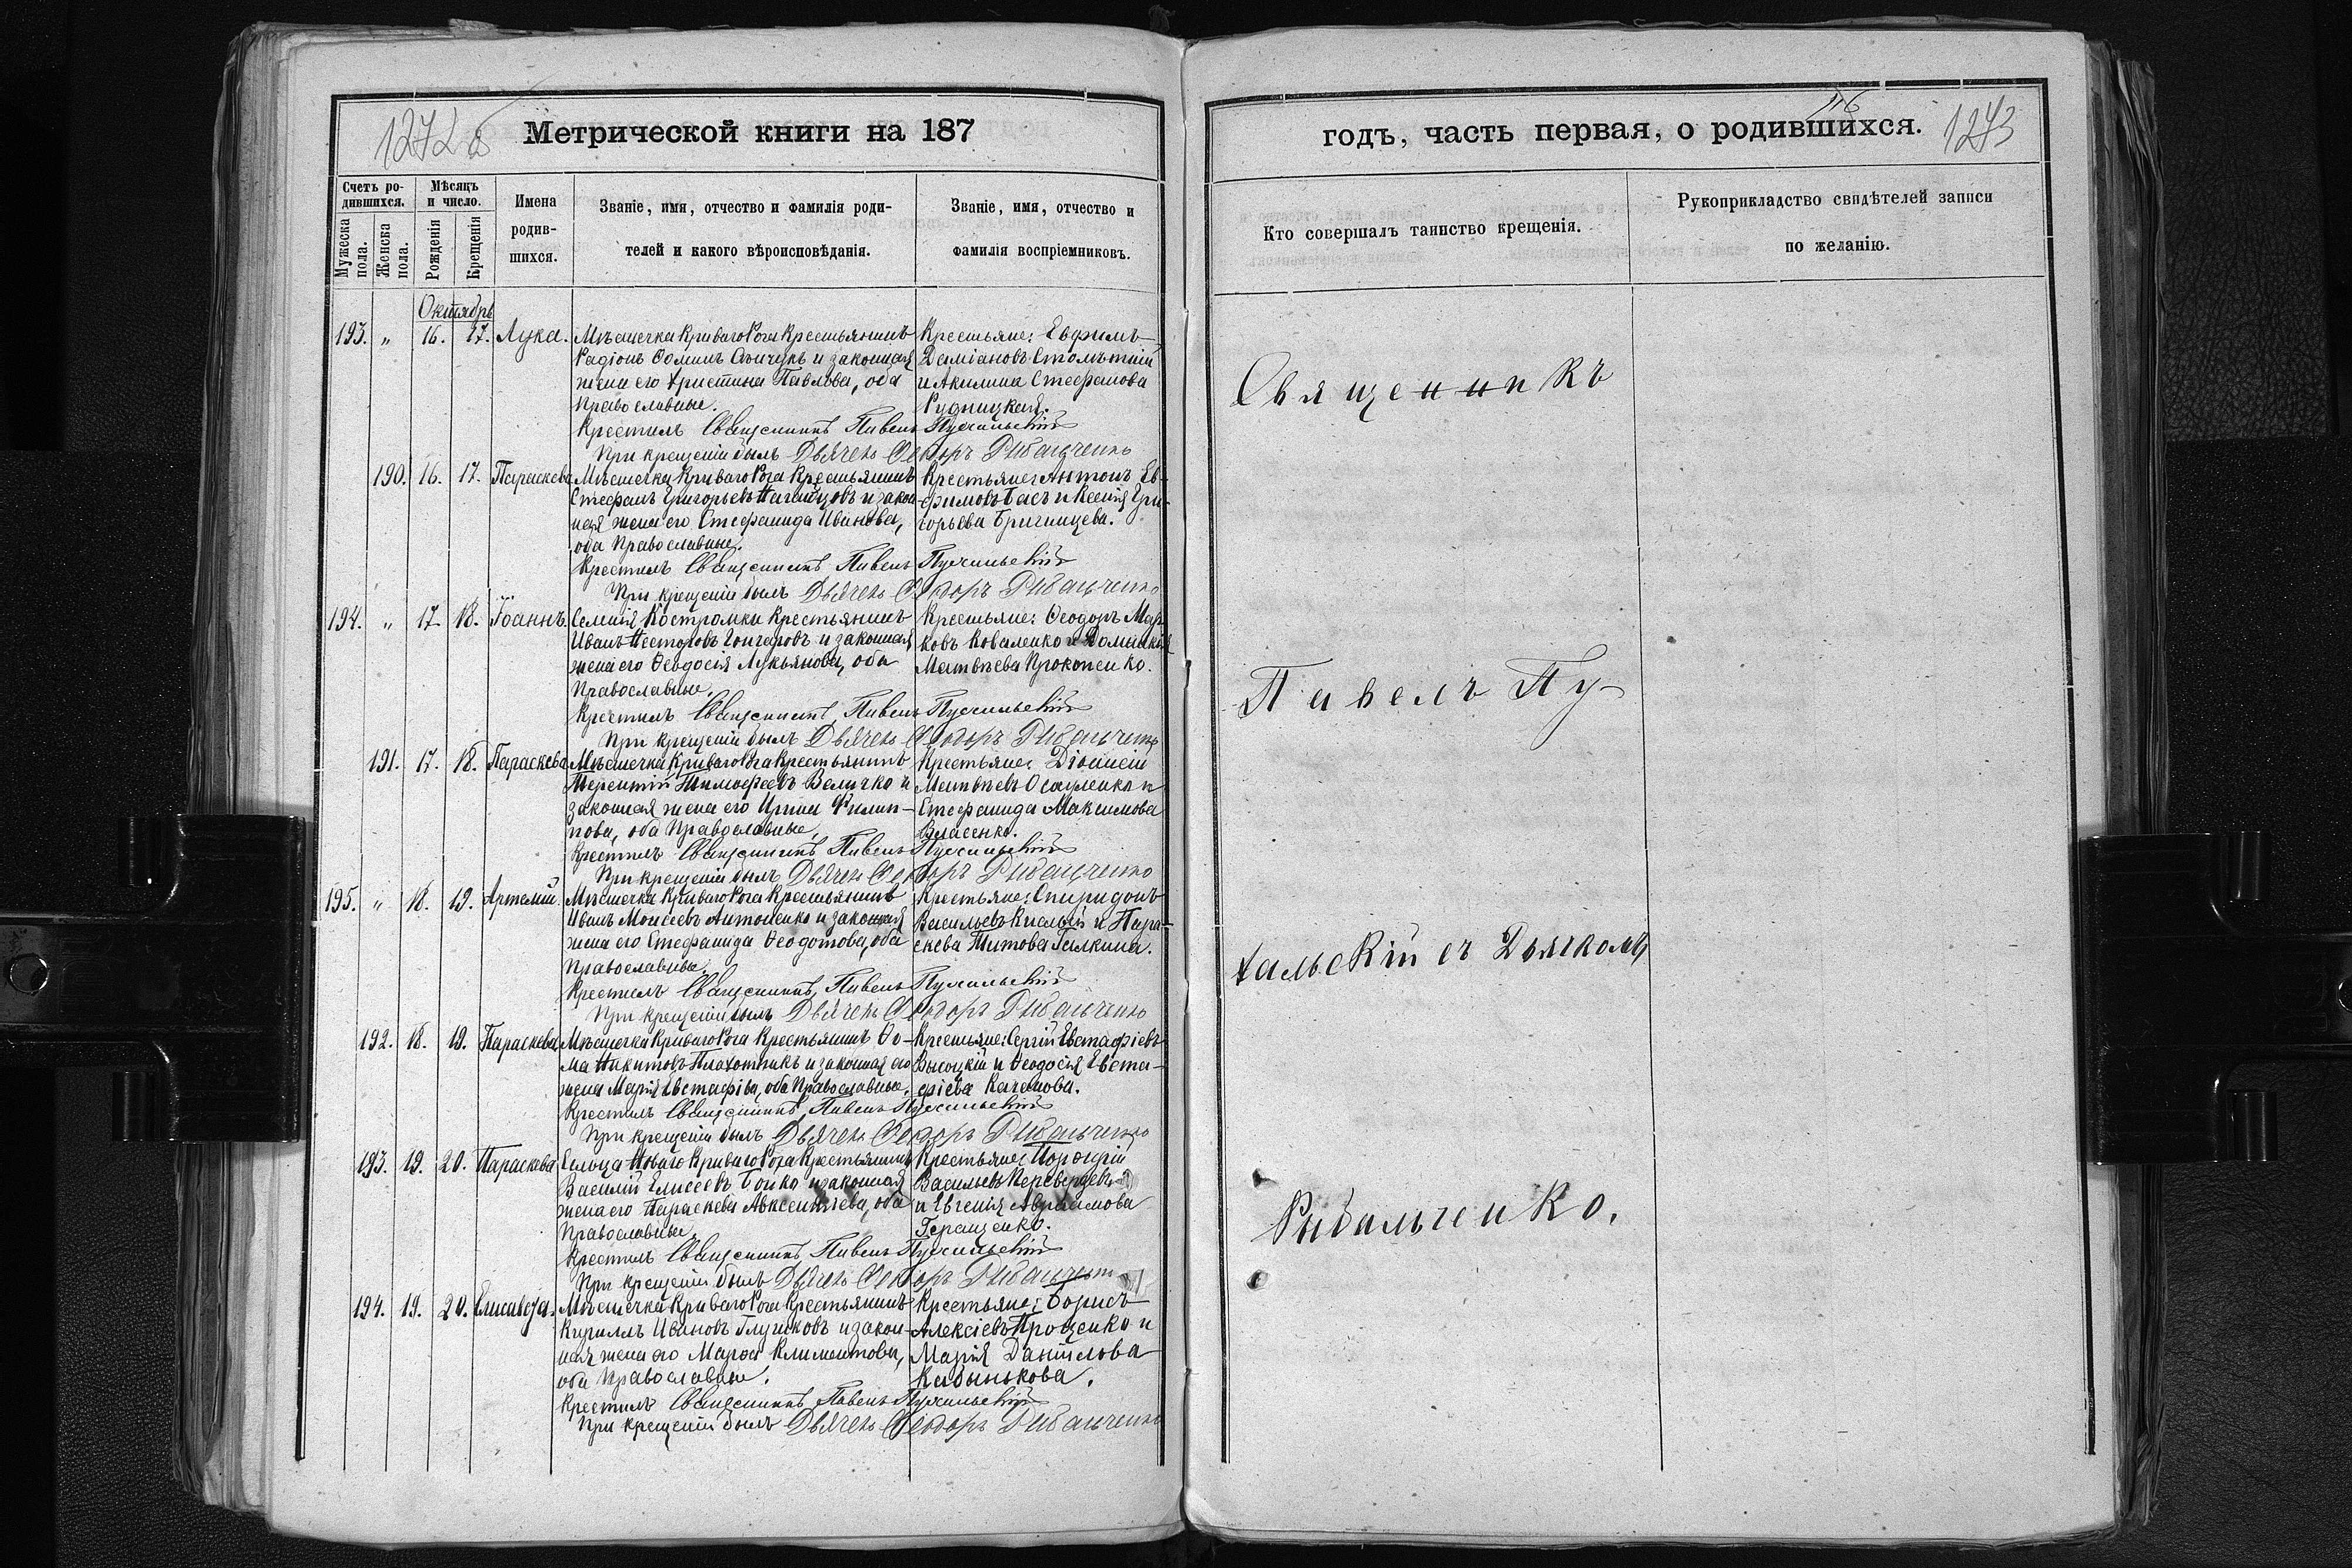 1272 об
Метрической книги на 187
Счетъ ро-
дившихся.
Мужеска
пола.
Женска
пола.
Мѣсяцъ
и число.
Рожденія
Крещенія
Имена
родив-
шихся.
Званіе, имя, отчество и фамилія роди-
телей и какого вѣроисповѣданія.
Званіе, имя, отчество и
фамилія воспріемниковъ.
Октябрь
193. „ 16. 17. Лука.
Мѣстечка Криваго Рога Крестьянинъ
Радіонъ Фоминъ и законная
жена его Христина Павлова, оба
Православные.
Крестьяне: Евфимъ
Даміановъ Столѣтній
и Акилина Стефанова
Рудницкая.
Крестилъ Священникъ Павелъ Пухальскій
При крещеніи былъ Дьячекъ Ѳедоръ Рибальченко
190. 16. 17. Параскева
Мѣстечка Криваго Рога Крестьянинъ
Стефанъ Григорьевъ и закон-
ная жена его Стефанида Иванова,
оба Православные.
Крестьяне: Антонъ Ев-
фимовъ Басъ и Ксенія Гри-
горьева Бригинцева.
Крестилъ Священникъ Павелъ Пухальскій
При крещеніи былъ Дьячекъ Ѳедоръ Рибальченко
194. „ 17. 18. Іоаннъ.
Селенія Костромки Крестьянинъ
Иванъ Несторовъ Гончаровъ и законная
жена его Ѳеодосія Лукьянова, оба
Православные.
Крестьяне: Ѳеодоръ Мар-
ковъ Коваленко и Домникія
Матвѣева Прокопенко.
Крестилъ Священникъ Павелъ Пухальскій
При крещеніи былъ Дьячекъ Ѳедоръ Рибальченко
191. 17. 18. Параскева
Мѣстечка Криваго Рога Крестьянинъ
Терентій Тимофеевъ Величко и
законная жена его Ирина Филип-
пова, оба Православные.
Крестьяне: Діонисій
Матвѣевъ Осауленко и
Стефанида Максимова
Власенко.
Крестилъ Священникъ Павелъ Пухальскій
При крещеніи былъ Дьячекъ Ѳедоръ Рибальченко
195. „ 18. 19. Артемій.
Мѣстечка Криваго Рога Крестьянинъ
Иванъ Моисеевъ Антоненко и законная
жена его Стефанида Ѳеодотова, оба
Православные.
Крестьяне: Спиридонъ
Васильевъ Кислый и Пара-
скева Титова Галкина.
Крестилъ Священникъ Павелъ Пухальскій
При крещеніи былъ Дьячекъ Ѳедоръ Рибальченко
192. 18. 19. Параскева
Мѣстечка Криваго Рога Крестьянинъ Ѳо-
ма Никитовъ Плахотникъ и законная его
жена Марія Евстафіева, оба Православные.
Крестьяне: Сергій Евстафіевъ
Высоцкій и Ѳеодосія Евста-
фіева Качанова.
Крестилъ Священникъ Павелъ Пухальскій
При крещеніи былъ Дьячекъ Ѳедоръ Рибальченко
193. 19. 20. Параскева
Сельца Новаго Криваго Рога Крестьянинъ
Василій Елисеевъ Бойко и законная
жена его Параскева Авксентіева, оба
Православные.
Крестьяне: Порфирій
Васильевъ
и Евгенія Авраамова
Геращенко.
Крестилъ Священникъ Павелъ Пухальскій
При крещеніи былъ Дьячекъ Ѳедоръ Рибальченко
194. 19. 20. Елисавета.
Мѣстечка Криваго Рога Крестьянинъ
Кириллъ Ивановъ Глушковъ и закон-
ная жена его Марфа Климентова,
оба Православные.
Крестьяне: Борисъ
Алексіевъ Проценко и
Марія Даніилова
Кабынькова.
Крестилъ Священникъ Павелъ Пухальскій
При крещеніи былъ Дьячекъ Ѳедоръ Рибальченко
116
годъ, часть первая, о родившихся.
1273
Кто совершалъ таинство крещенія.
Рукоприкладство свидѣтелей записи
по желанію.
Священникъ
Павелъ Пу-
хальскій съ Дьячкомъ
Рибальченко.